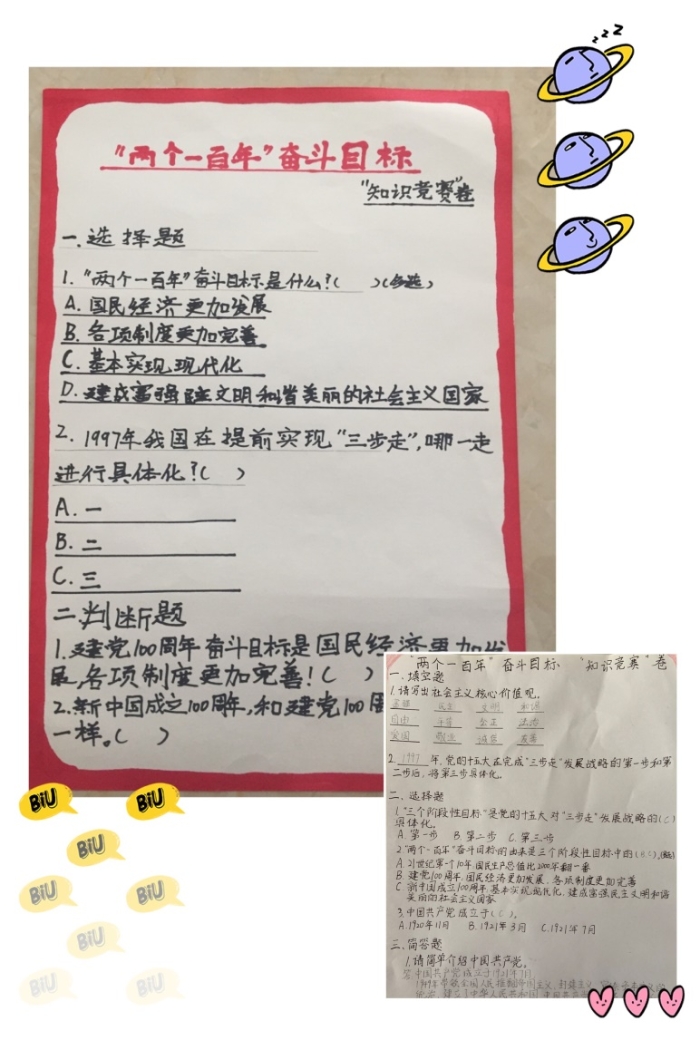 "两个一百年"奋斗目标
"知识竞赛"卷
一、选择题
1. "两个一百年"奋斗目标是什么?( )(多选)
A. 国民经济更加发展
B. 各项制度更加完善
C. 基本实现现代化
D. 建成富强民主文明和谐美丽的社会主义国家
2. 1997年我国在提前实现"三步走",哪一走
进行具体化?( )
A. 一
B. 二
C. 三
二、判断题
1. 建党100周年奋斗目标是国民经济更加发
展,各项制度更加完善!( )
2. 新中国成立100周年,和建党100周
一样。( )
"两个一百年"奋斗目标、"知识竞赛"卷
一、填空题
1. 请写出社会主义核心价值观。
富强 民主 文明 和谐
自由 平等 公正 法治
爱国 敬业 诚信 友善
2. 1997年,党的十五大在完成"三步走"发展战略的第一步和第
二步后,将第三步具体化。
二、选择题
1. "三个阶段性目标"是党的十五大对"三步走"发展战略的(C)
具体化。
A. 第一步 B. 第二步 C. 第三步
2. "两个一百年"奋斗目标的由来是三个阶段性目标中的(BC),
A. 21世纪第一个10年,国民生产总值比2000年翻一番
B. 建党100周年,国民经济更加发展,各项制度更加完善
C. 新中国成立100周年,基本实现现代化,建成富强民主文明和谐
美丽的社会主义国家
3. 中国共产党成立于(C)。
A. 1920年11月 B. 1921年3月 C. 1921年7月
三、简答题
1. 请简单介绍中国共产党。
答:中国共产党成立于1921年7月
zzz
BiU BiU
BiU
BiU BiU
BiU
BiU BiU